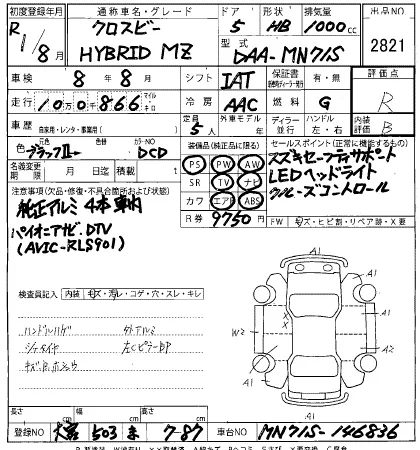 初度登録年月 通称車名・グレード ドア 形状 排気量 出品NO
R1/8月 クロスビー HYBRID MZ 5 HB 1000cc 2821
型式 DAA-MN71S
車検 8年8月 シフト IAT 保証書 有・無 評価点
走行 10万0千866 マイル キロ 冷房 AAC 燃料 G R
車歴 自家用・レンタ・事業用( ) 定員 5人 外車モデル 年 ディーラー 並行 ハンドル 左・右 内装評価 B
色 ブラックⅡ 元色 色替 カラーNO DCD
装備品(純正品に限る) セールスポイント(正常に機能するもの)
名義変更期限 月 日 積載 t
PS PW AW スズキセーフティサポート
SR TV ナビ LEDヘッドライト
カワ エアB ABS クルーズコントロール
注意事項(欠品・修復・不具合箇所および状態)
R券 9750円 FW キズ・ヒビ割・リペア跡・X要
純正アルミ4本車内
パイオニアナビ.DTV
(AVIC-RLS901)
検査員記入 内装 キズ・汚レ・コゲ・穴・スレ・キレ
ハンドルハゲ 外アルミ
左CピラーBP
A1
A1
A1
W2 X X A2
A1
A1
長さ cm 幅 cm 高さ cm
登録NO 503 ま 7-87 車台NO MN71S-146836